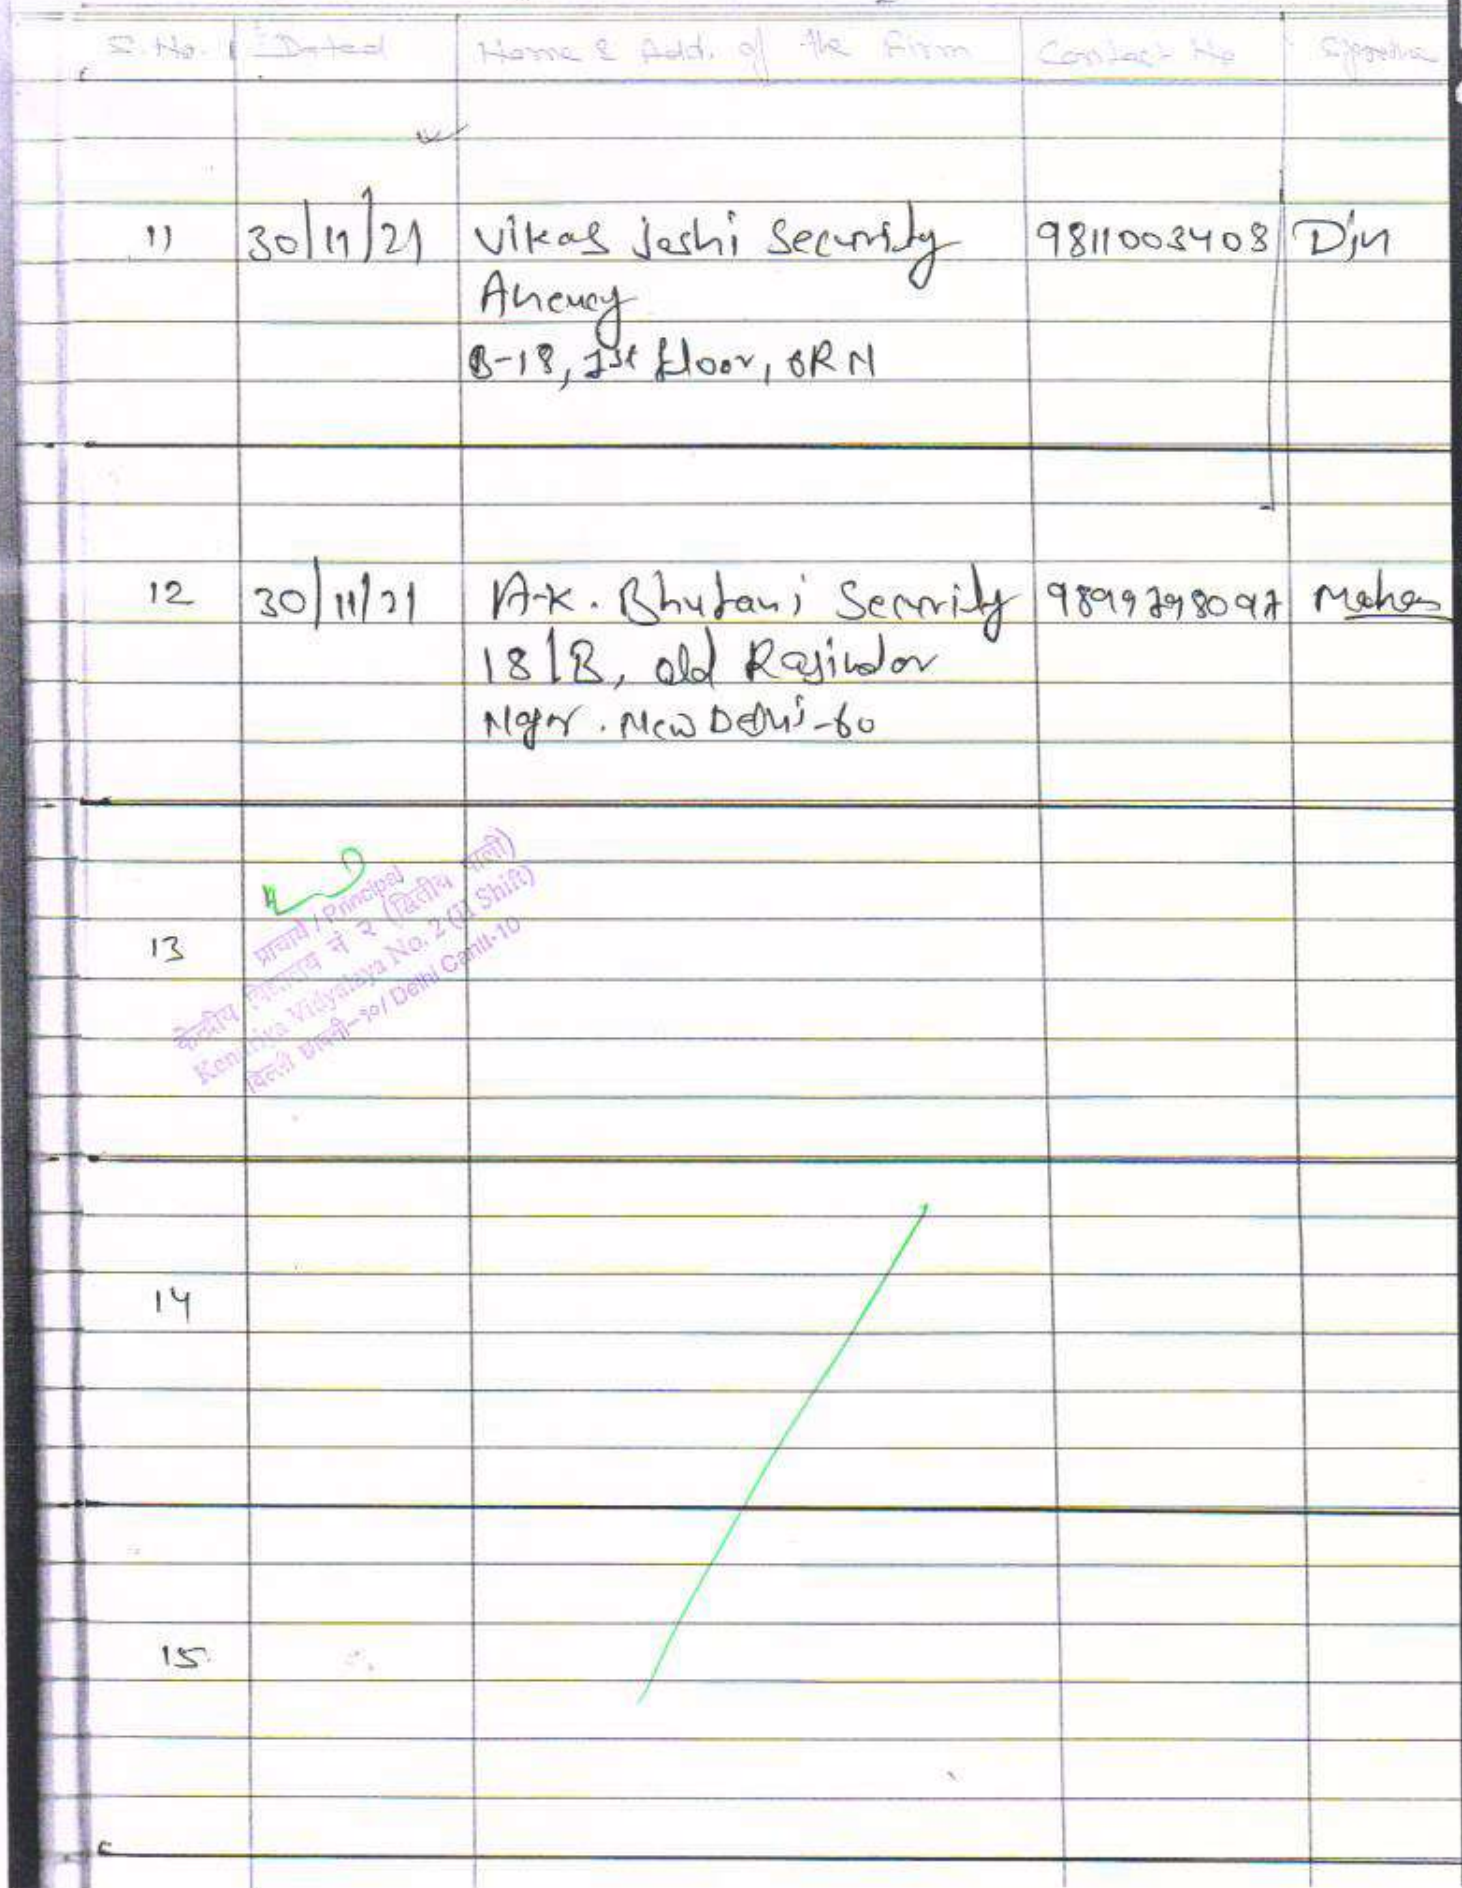 S. No. Dated Name & Add. of the Firm Contact No Signature
11 30/11/21 Vikas Joshi Security 9811003408
Ahency
B-18, 1st floor, ORN
12 30/11/21 A.K. Bhutani Security Mahes
18/B, old Rajinder
Nagar. New Delhi-60
प्राचार्य / Principal
केन्द्रीय विद्यालय नं २ (द्वितीय पाली)
Kendriya Vidyalaya No. 2 (II Shift)
दिल्ली छावनी-१०/ Delhi Cantt-10
13
14
15.